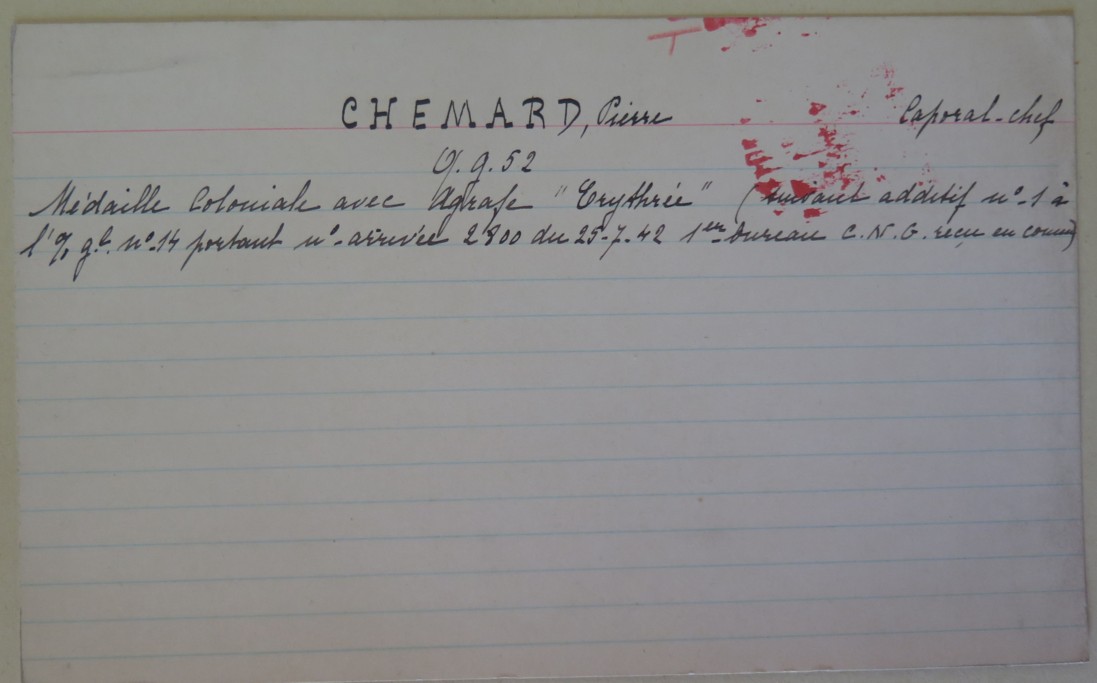 CHEMARD, Pierre Caporal-chef
G.G.52
Médaille Coloniale avec Agrafe "Erythrée" (suivant additif n°-1 à
l'O/ gl. n°-14 portant n°-arrivée 2800 du 25-7-42 1er bureau C.N.G. reçu en comm)